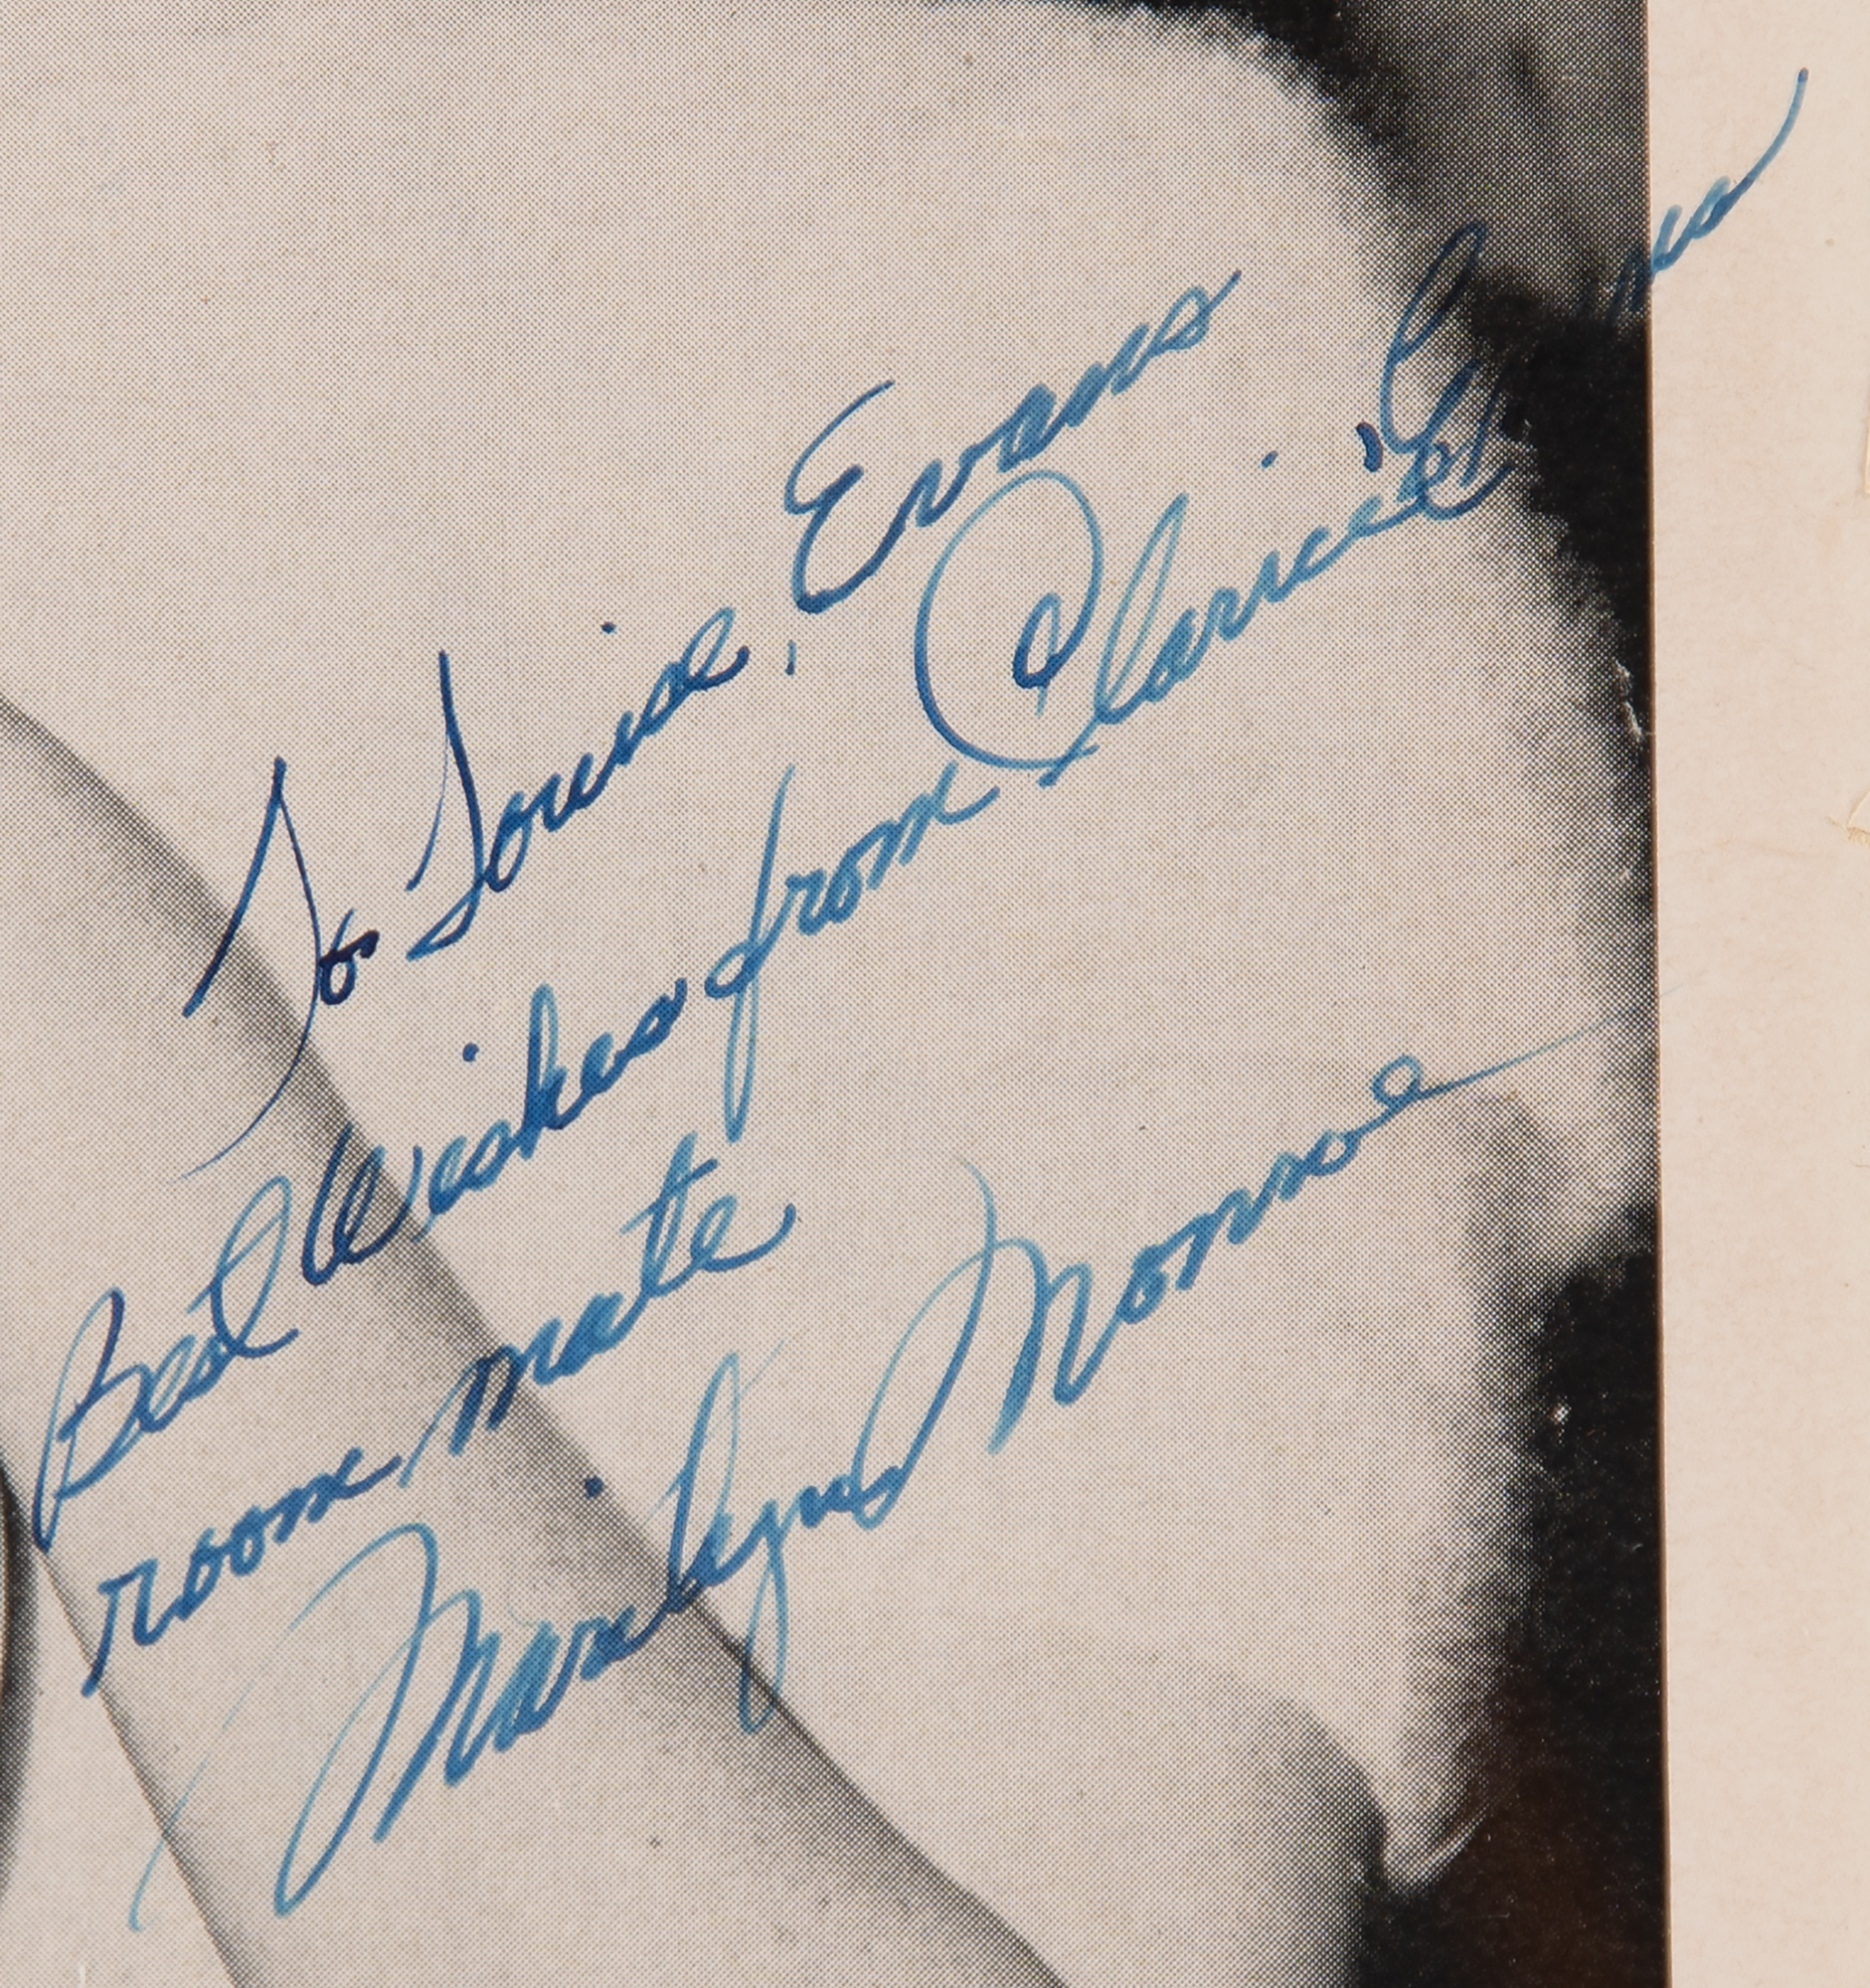 To Louise, Evans
Best Wishes from Clarice
room mate
Marilyn Monroe